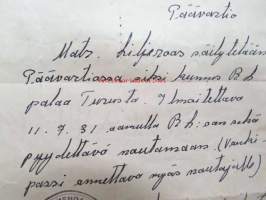 Päävartio
Mats. kiljszoas säilytetään
Päävartiossa siksi kunnes B h
palaa Turusta. Ilmoitettava
11.7.31 aamulla B h:oon sekä
pyydettävä noutamaan. (Vanki-
passi annettava myös noutajalle)